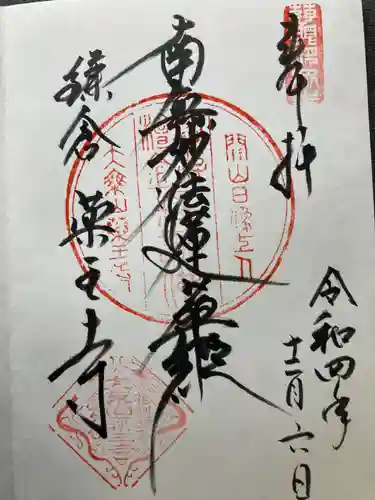 奉拝
南無妙法蓮華経
鎌倉
薬王寺
令和四年
十二月六日
開山日像上人
大乗山薬王寺